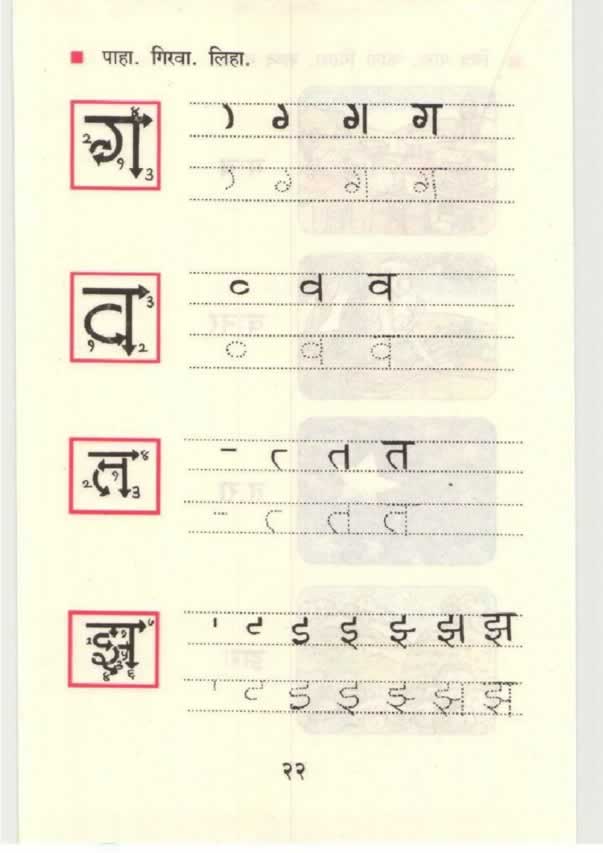 पाहा. गिरवा. लिहा.
ग ग ग
ग ग
व व व
व व
त त त
त त
झ झ झ
झ झ
२२